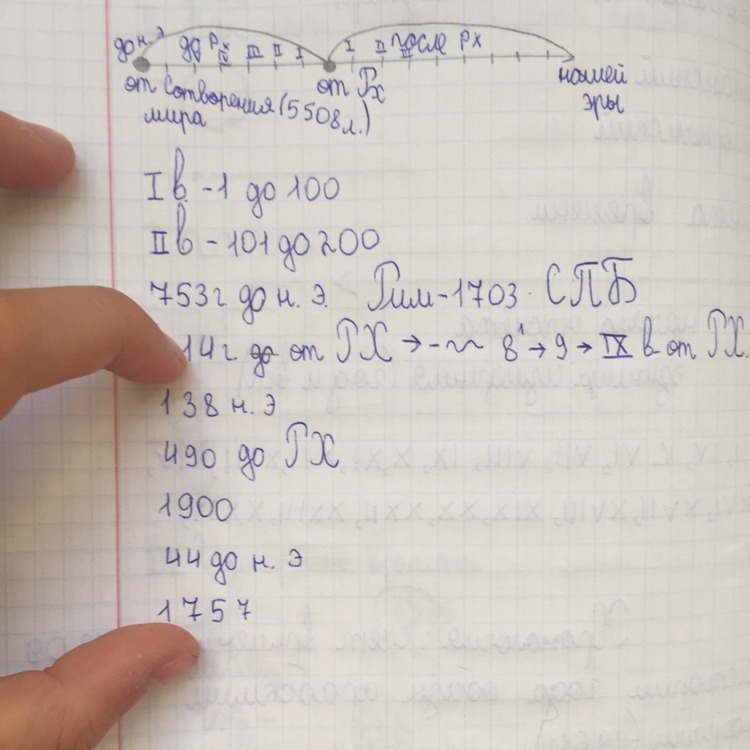 до н. э до РХ IV III II I I II III после РХ
от Сотворения (5508 л.) от РХ нашей
мира эры
I в. - 1 до 100
II в - 101 до 200
753 г до н. э. Рим - 1703. СПБ
14 г. до от РХ → - 8 → 9 → IX в от РХ.
138 н. э
490 до РХ
1900
44 до н. э
1757